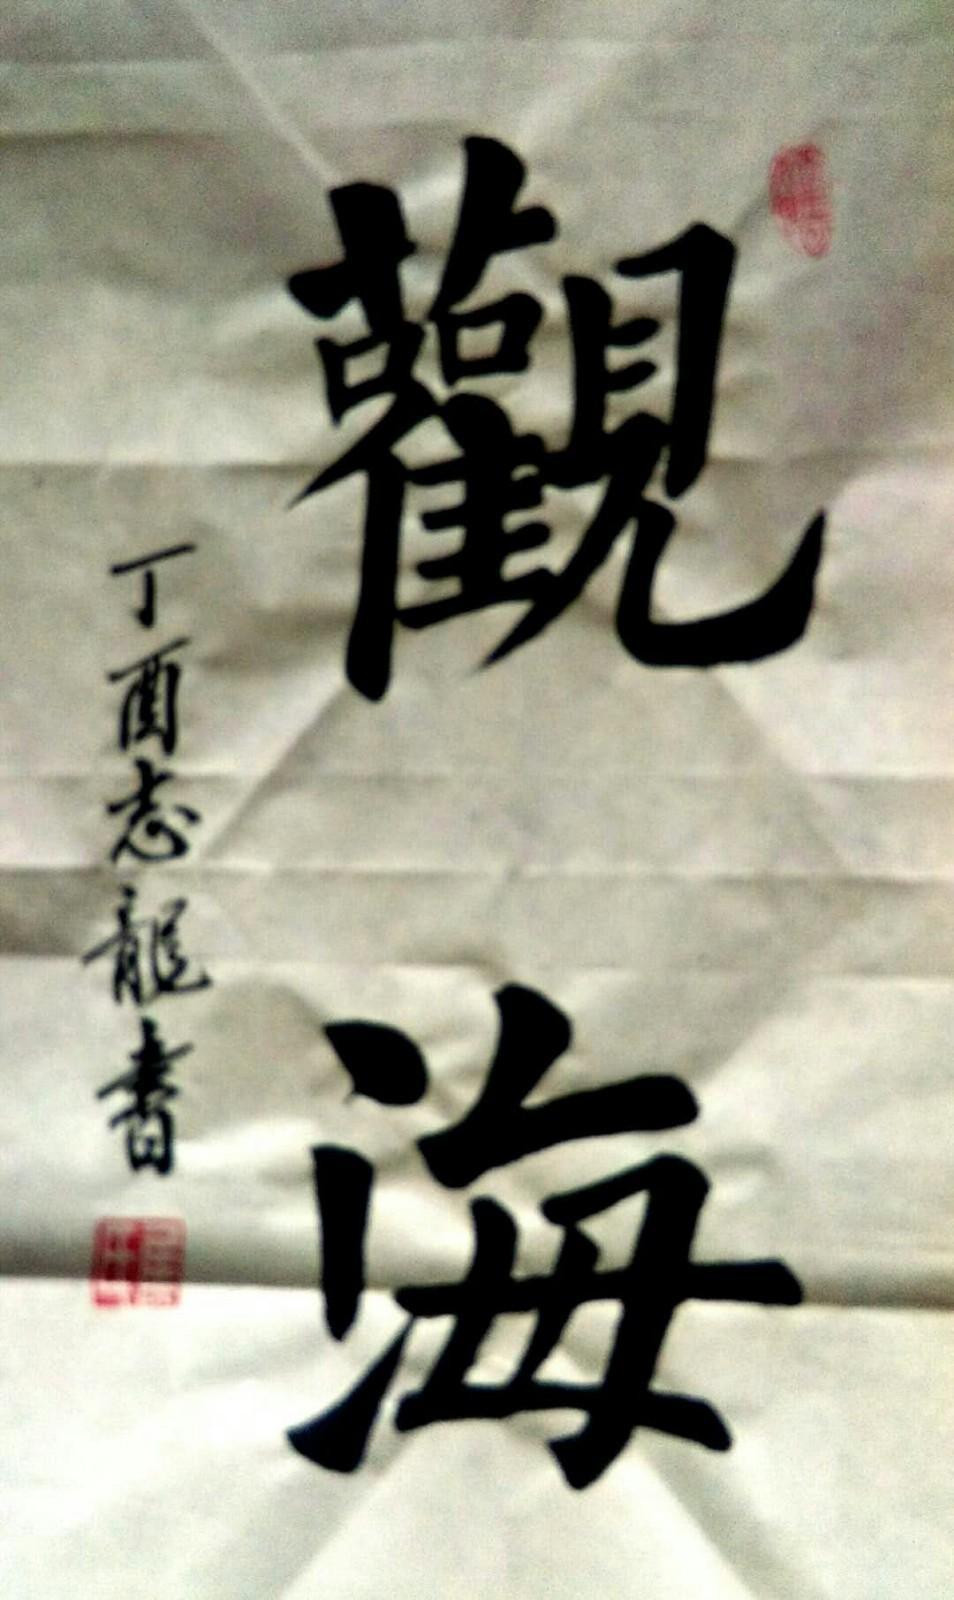 觀海
丁酉志龍書